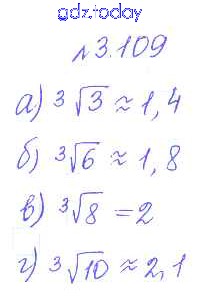 gdz.today
№3.109
а) ³√3 ≈ 1,4
б) ³√6 ≈ 1,8
в) ³√8 = 2
г) ³√10 ≈ 2,1